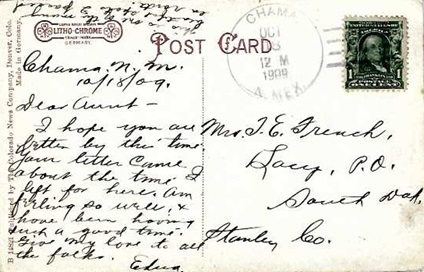 LITHO-CHROME
TRADE MARK
GERMANY.
POST CARD.
CHAMA
OCT
12 M
1909
N. MEX.
1
B 12921 Published by The Colorado News Company, Denver, Colo.
Made in Germany.
Chama N. M.
10/18/09.
Dear Aunt-
I hope you are
better by this time.
your letter came
about the time I
left for here. Am
feeling so well, &
have been having
such a good time.
Give my love to all
the folks.
Edna
Mrs. T. E. French,
Lacy, P.O.
South Dak.
Stanley Co.